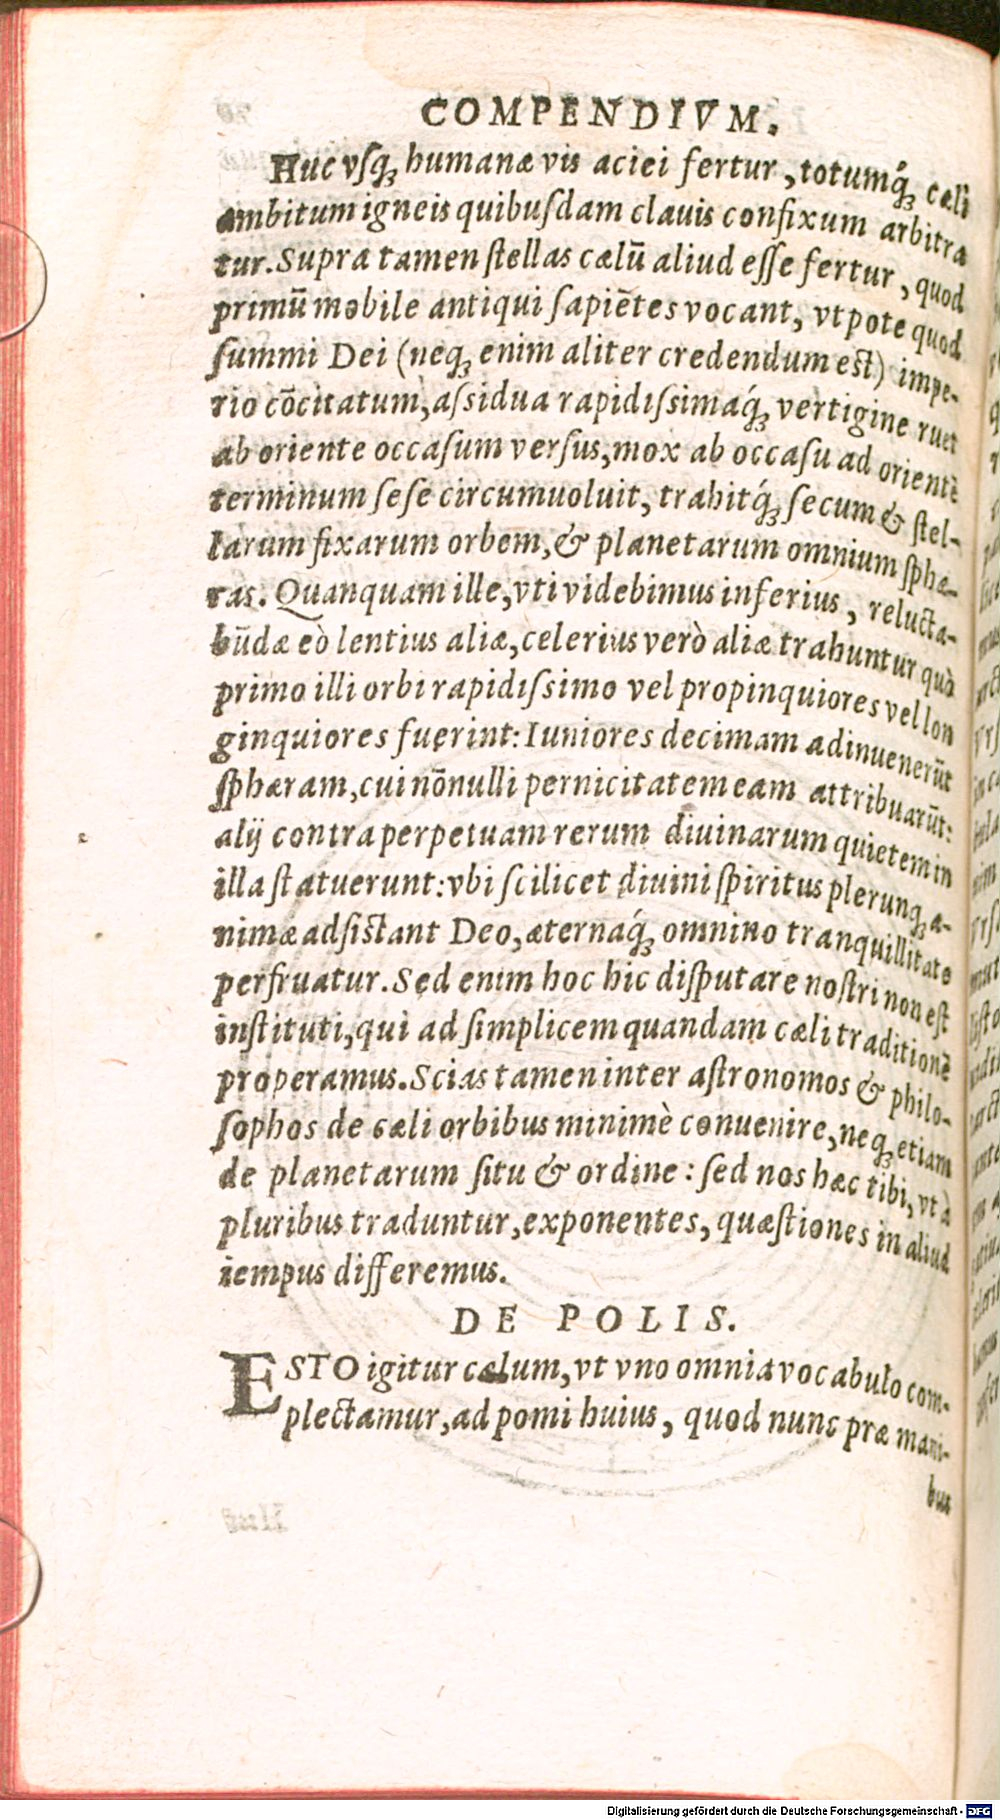 COMPENDIVM.
Huc vſq; humanæ vis aciei fertur, totumq́; cæli
ambitum igneis quibuſdam clauis confixum arbitra
tur. Supra tamen ſtellas cælū aliud eſſe fertur, quod
primū mobile antiqui ſapiētes vocant, vtpote quod
ſummi Dei (neq; enim aliter credendum eſt) impe-
rio cōcitatum, aſsidua rapidiſsimaq́; vertigine ruet
ab oriente occaſum verſus, mox ab occaſu ad orientē
terminum ſeſe circumuoluit, trahitq́; ſecum & ſtel-
larum fixarum orbem, & planetarum omnium ſphæ-
ras. Quanquam ille, vti videbimus inferius, relucta-
būdæ eò lentius aliæ, celerius verò aliæ trahuntur quò
primo illi orbi rapidiſsimo vel propinquiores vel lon
ginquiores fuerint: Iuniores decimam adinuenerūt
ſphæram, cui nōnulli pernicitatem eam attribuarūt:
alij contra perpetuam rerum diuinarum quietem in
illa ſtatuerunt: vbi ſcilicet diuini ſpiritus plerunq; a-
nimæ adſiſtant Deo, æternaq́; omnino tranquillitate
perfruatur. Sed enim hoc hic diſputare noſtri non eſt
inſtituti, qui ad ſimplicem quandam cæli traditionē
properamus. Scias tamen inter aſtronomos & philo-
ſophos de cæli orbibus minimè conuenire, neq; etiam
de planetarum ſitu & ordine: ſed nos hæc tibi, vt à
pluribus traduntur, exponentes, quæſtiones in aliud
tempus differemus.
DE POLIS.
ESTO igitur cælum, vt vno omnia vocabulo com-
plectamur, ad pomi huius, quod nunc præ mani-
bus
Digitalisierung gefördert durch die Deutsche Forschungsgemeinschaft - DFG